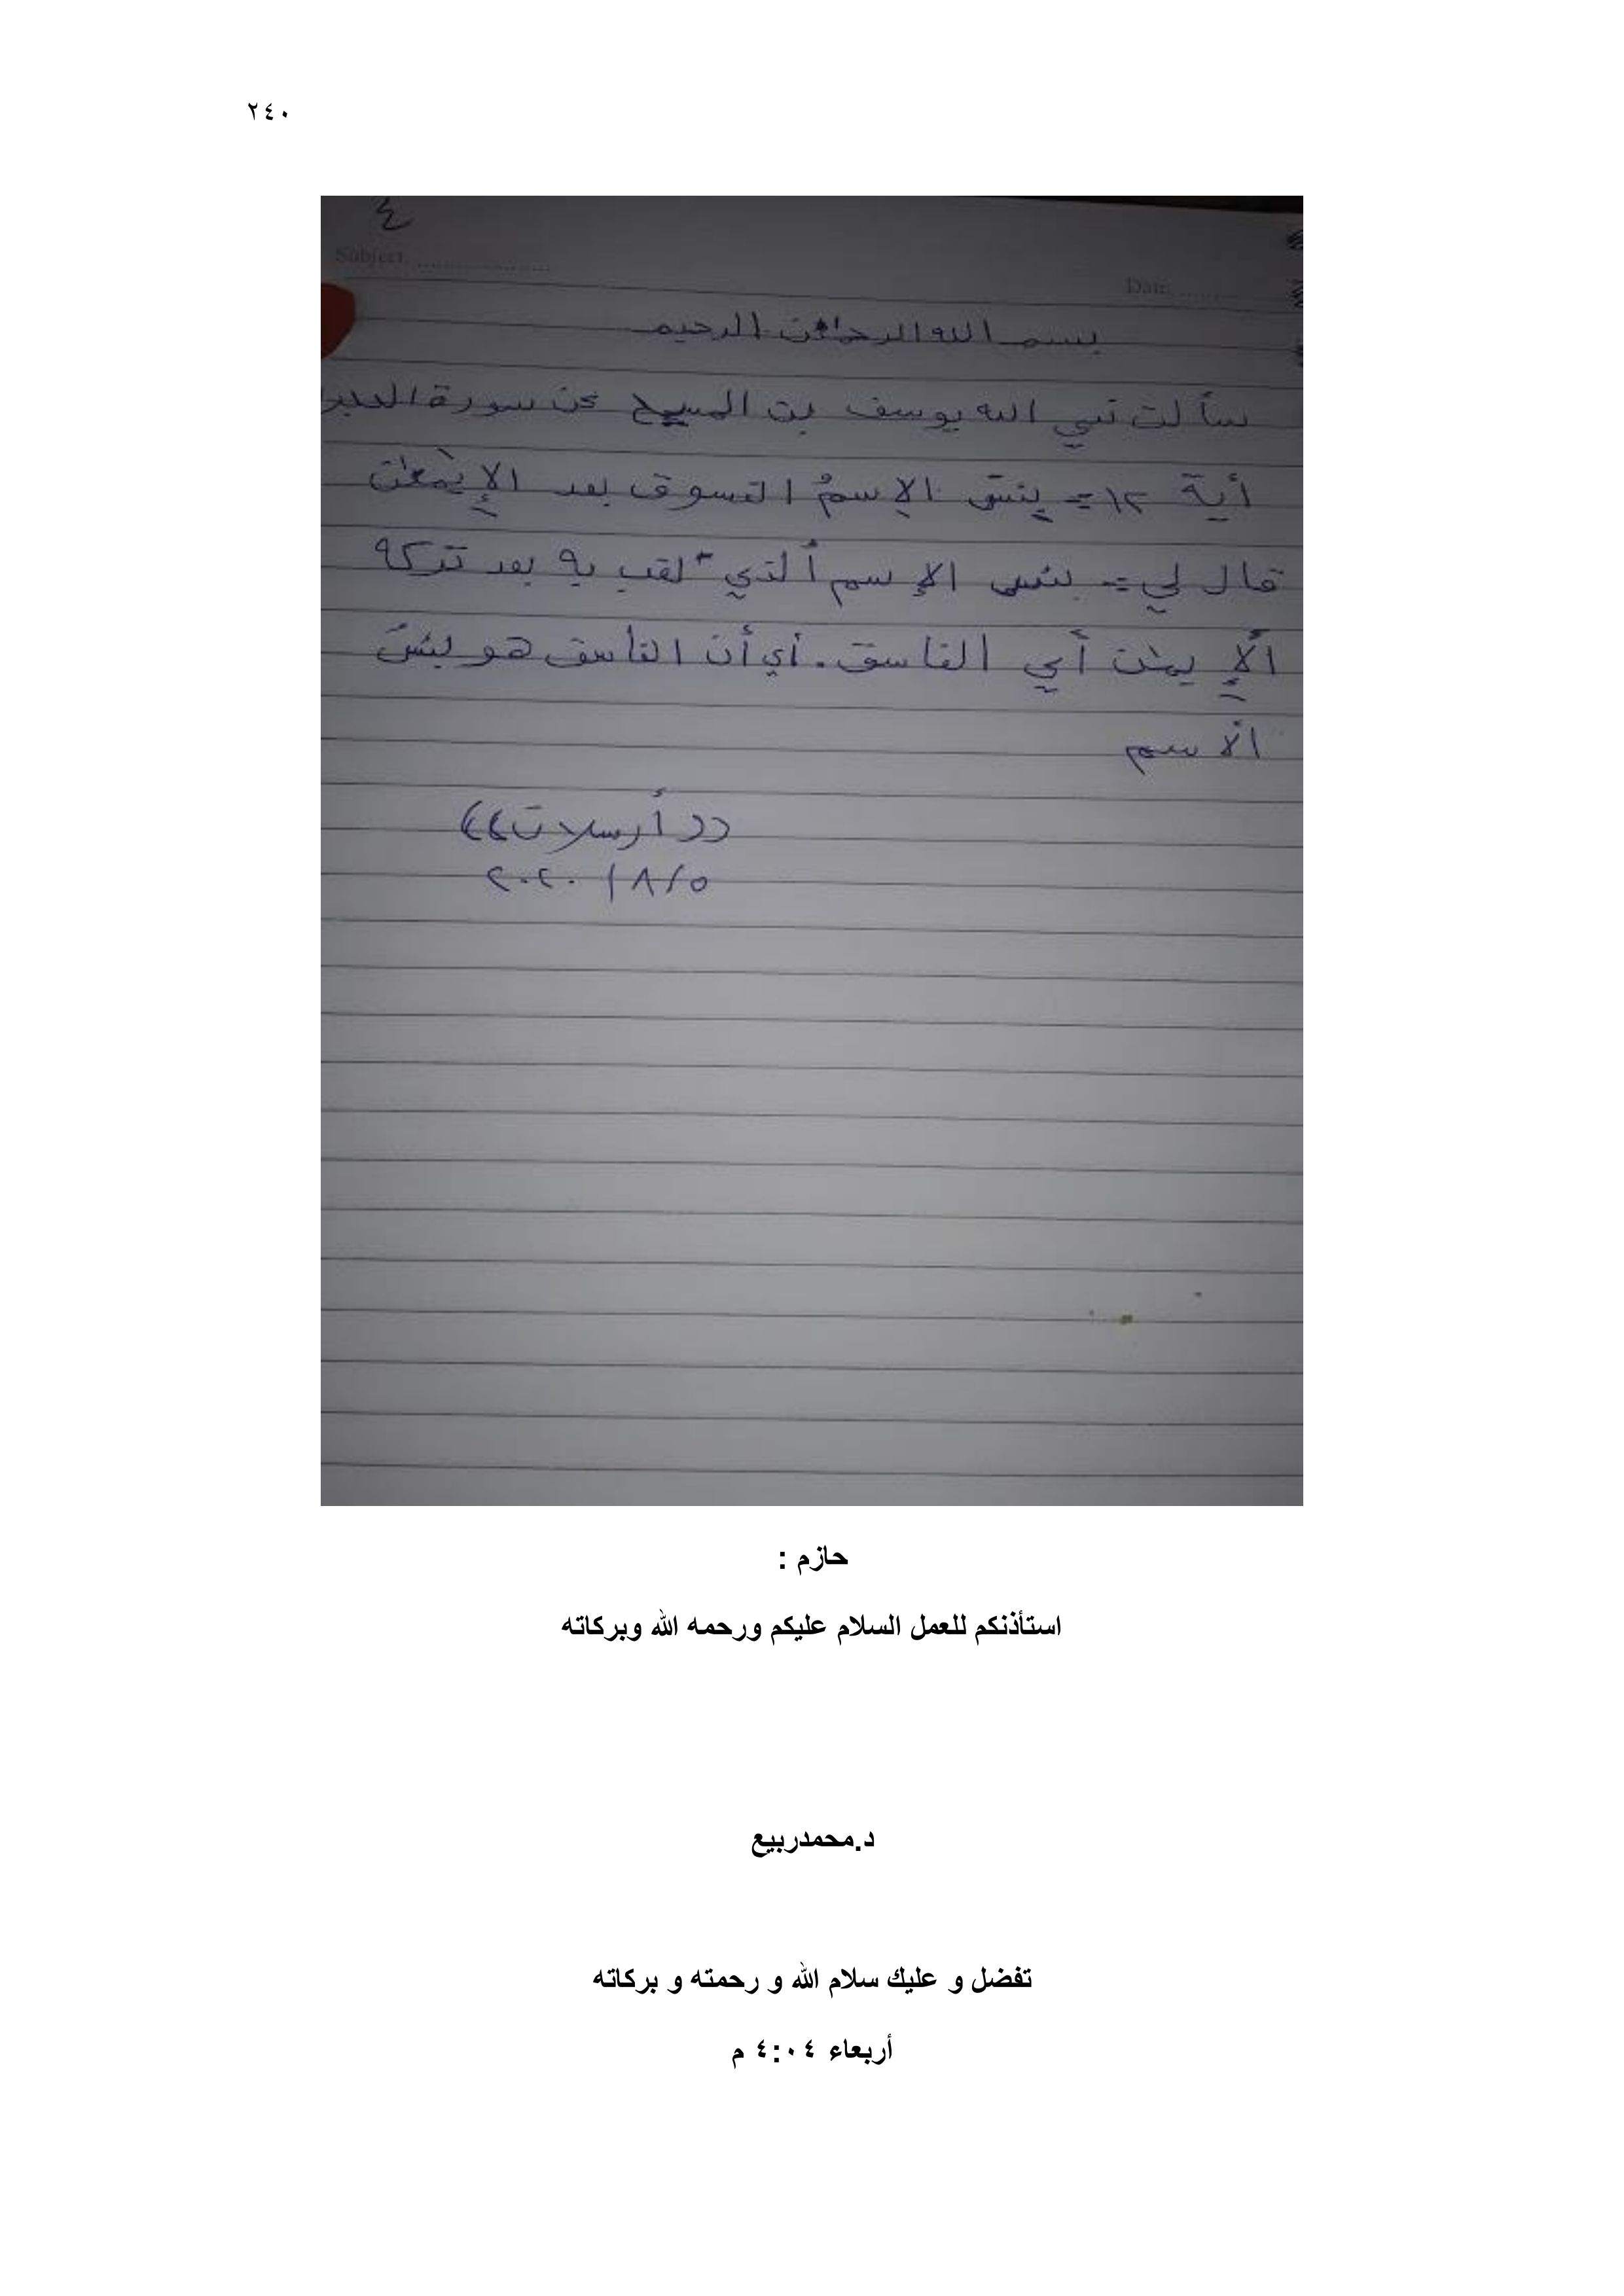 ٢٤٠
٤
Subject:
Date:
بسم الله الرحمٰن الرحيم
سألت نبي الله يوسف بن المسيح عن سورة
أية ١٢ = بئس الإسمُ الفسوق بعد الإيمٰن
قال لي = بئس الإسم ألذي لقب به بعد تركه
ألإيمٰن أي الفاسق. أي أن الفاسق هو بئس
الاسم
((أرسلان))
٥/٨/٢٠٢٠
حازم :
استأذنكم للعمل السلام عليكم ورحمه الله وبركاته
د.محمدربيع
تفضل و عليك سلام الله و رحمته و بركاته
أربعاء ٤:٠٤ م